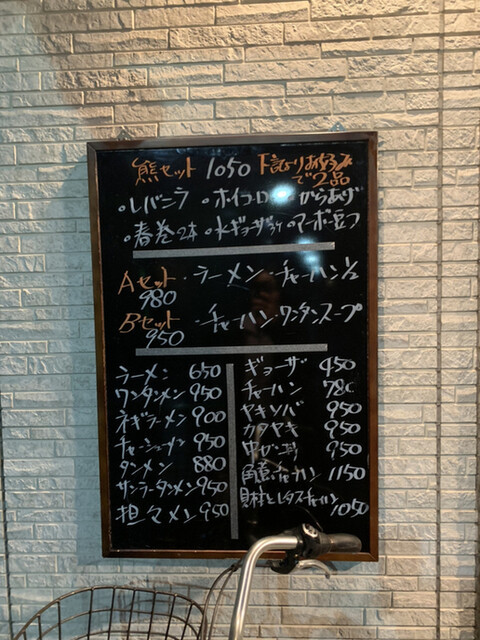 熊セット 1050 下記よりお好みで2品
・レバニラ ・ホイコーロ ・からあげ
・春巻2本 ・水ギョーザ ・マーボー豆フ
Aセット・ラーメン・チャーハン1/2
980
Bセット・チャーハン・ワンタンスープ
950
ラーメン 650
ワンタンメン 950
ネギラーメン 900
チャーシューメン 950
タンメン 880
サンラータンメン 950
担々メン 950
ギョーザ 450
チャーハン 780
ヤキソバ 950
カタヤキ 950
中かい丼 950
チャーハン 1150
レタスチャーハン
1050